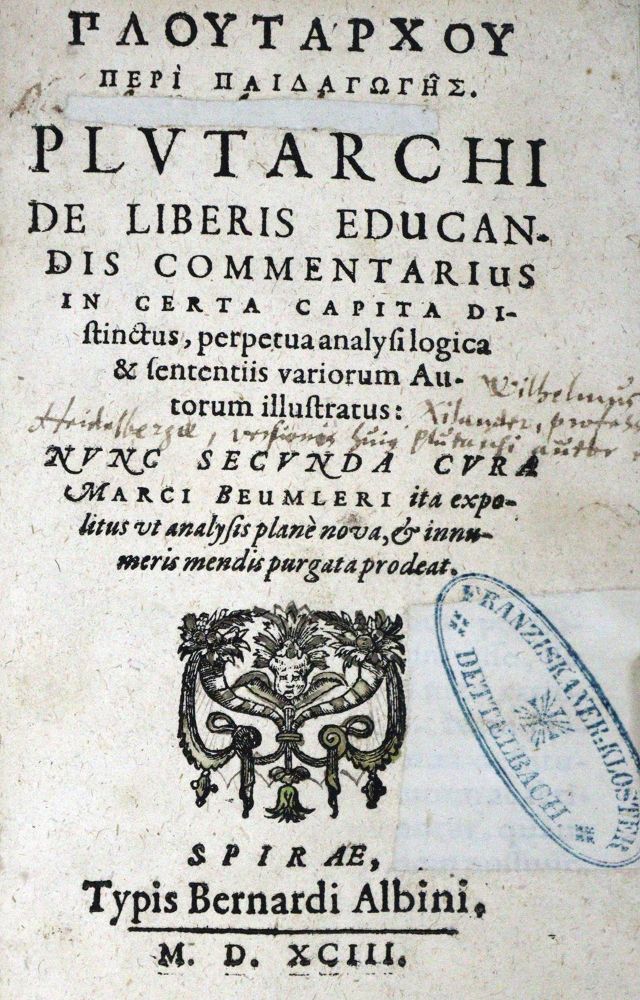 ΠΛΟΥΤΑΡΧΟΥ
ΠΕΡὶ ΠΑΙΔΑΓΩΓΗ͂Σ.
PLVTARCHI
DE LIBERIS EDUCAN-
DIS COMMENTARIuS
IN CERTA CAPITA DI-
ſtinctus, perpetua analyſi logica
& ſententiis variorum Au-
torum illuſtratus:
Wilhelmus
Xilander, profess
Heidelbergæ, versionis huius Plutarchi autor
NVNC SECVNDA CVRA
MARCI BEUMLERI ita expo-
litus vt analysis planè nova, & innu-
meris mendis purgata prodeat.
FRANZISKANER-KLOSTER
DETTELBACH
SPIRAE,
Typis Bernardi Albini.
M. D. XCIII.